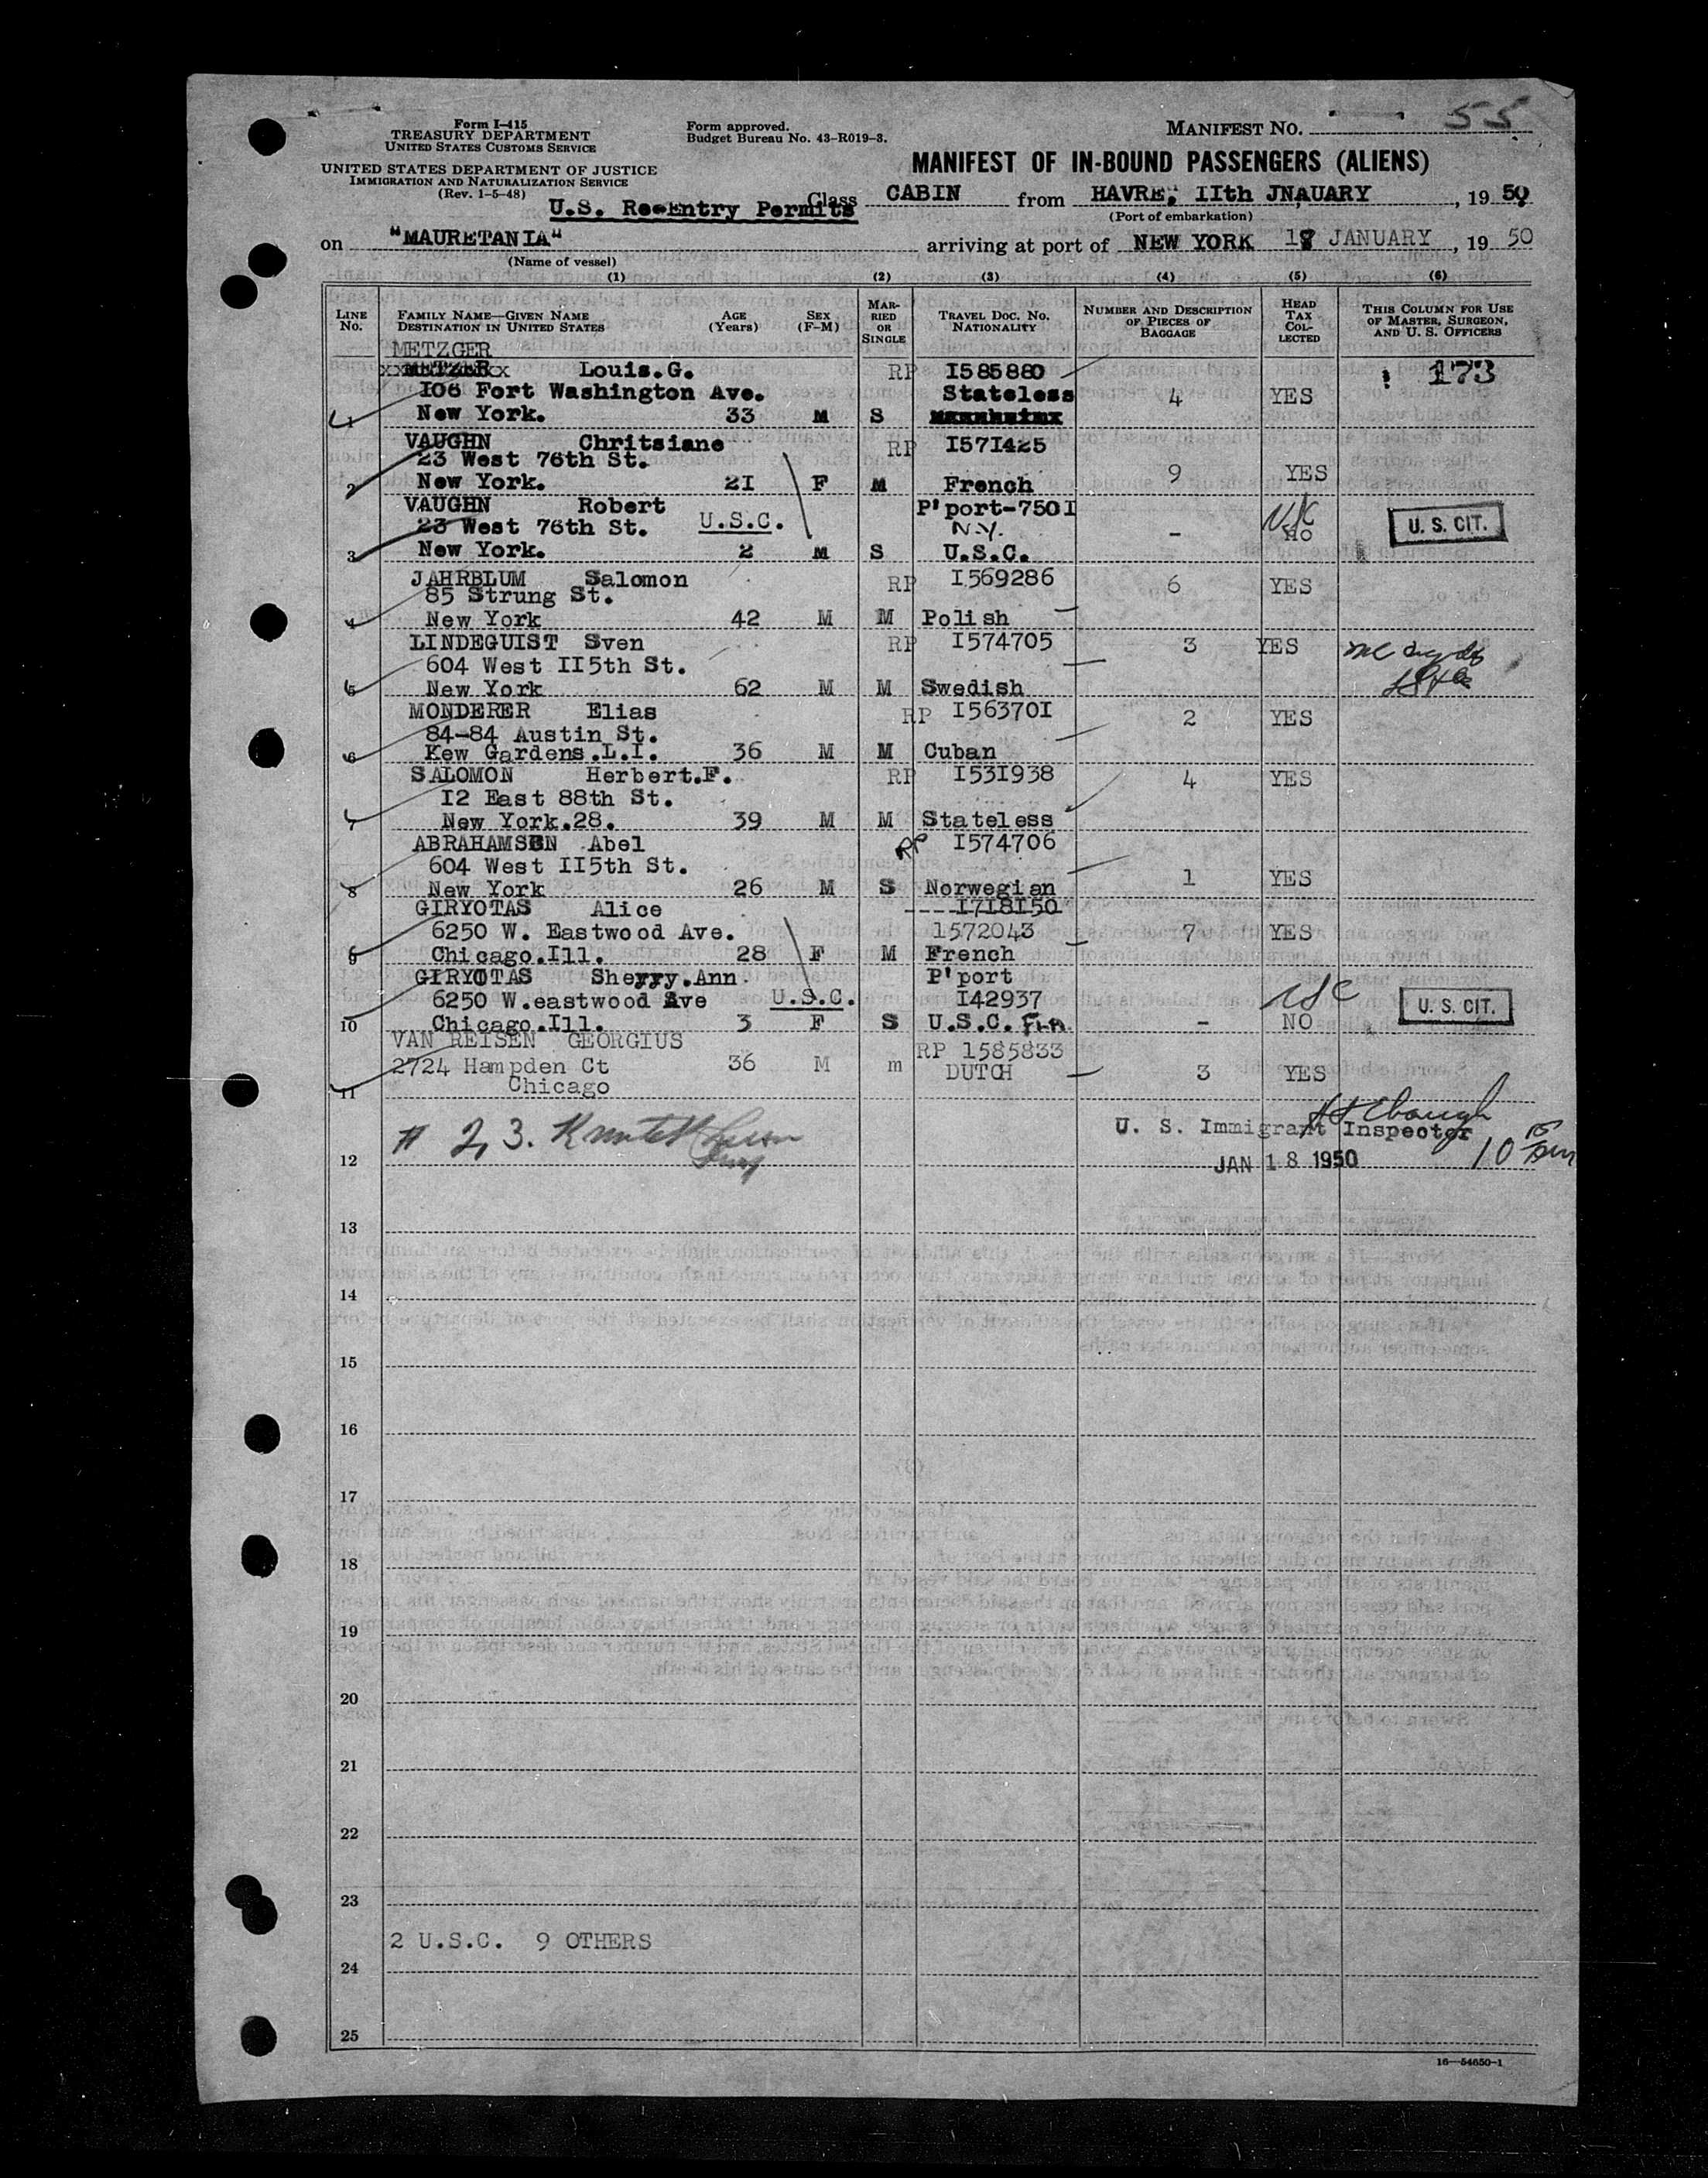 Form I-415
TREASURY DEPARTMENT
UNITED STATES CUSTOMS SERVICE
UNITED STATES DEPARTMENT OF JUSTICE
IMMIGRATION AND NATURALIZATION SERVICE
(Rev. 1-5-48)
Form approved.
Budget Bureau No. 43-R019-3.
MANIFEST NO. 55
MANIFEST OF IN-BOUND PASSENGERS (ALIENS)
U.S. Reeentry Permits Class CABIN from HAVRE, IIth JNAUARY, 19 50
(Port of embarkation)
on "MAURETANIA" arriving at port of NEW YORK 18 JANUARY, 19 50
(Name of vessel)
(1) (2) (3) (4) (5) (6)
LINE No.
FAMILY NAME—GIVEN NAME
DESTINATION IN UNITED STATES
AGE (Years)
SEX (F-M)
MARRIED OR SINGLE
TRAVEL DOC. NO.
NATIONALITY
NUMBER AND DESCRIPTION OF PIECES OF BAGGAGE
HEAD TAX COLLECTED
THIS COLUMN FOR USE OF MASTER, SURGEON, AND U. S. OFFICERS
METZGER
METZER Louis.G. RP I585880 173
106 Fort Washington Ave. Stateless 4 YES
1 New York. 33 M S
VAUGHN Chritsiane RP I57I425
23 West 76th St. 9 YES
2 New York. 2I F M French
VAUGHN Robert P'port-750I
23 West 76th St. U.S.C. N.Y. - NO USC U. S. CIT.
3 New York. 2 M S U.S.C.
JAHRBLUM Salomon RP I569286 6 YES
85 Strung St.
4 New York 42 M M Polish
LINDEGUIST Sven RP I574705 3 YES
604 West II5th St.
5 New York 62 M M Swedish
MONDERER Elias RP I56370I 2 YES
84-84 Austin St.
6 Kew Gardens.L.I. 36 M M Cuban
SALOMON Herbert.F. RP I53I938 4 YES
I2 East 88th St.
7 New York.28. 39 M M Stateless
ABRAHAMSEN Abel RP I574706
604 West II5th St. 1 YES
8 New York 26 M S Norwegian
GIRYOTAS Alice I7I8I50
6250 W. Eastwood Ave. 1572043 7 YES
9 Chicago.Ill. 28 F M French
GIRYOTAS Sheryy.Ann. P'port
6250 W.eastwood Ave U.S.C. I42937 USC U. S. CIT.
10 Chicago.Ill. 3 F S U.S.C. - NO
VAN REISEN GEORGIUS RP 1585833
2724 Hampden Ct 36 M m DUTCH 3 YES
11 Chicago
# 2, 3.
U. S. Immigrant Inspector
12 JAN 18 1950 10
13
14
15
16
17
18
19
20
21
22
23
2 U.S.C. 9 OTHERS
24
25
16—54650-1